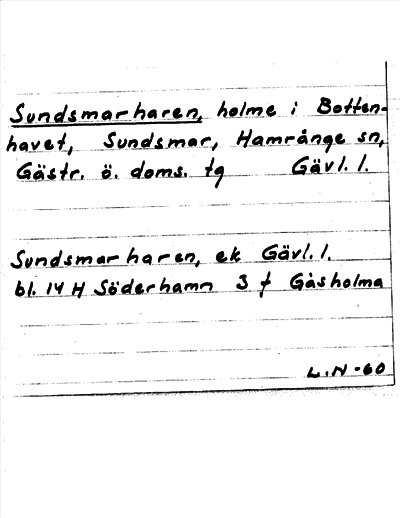 Sundsmarharen, holme i Botten-
havet, Sundsmar, Hamrånge sn,
Gästr. ö. doms. tg Gävl. l.
Sundsmarharen, ek Gävl. l.
bl. 14 H Söderhamn 3 f Gåsholma
L.N -60